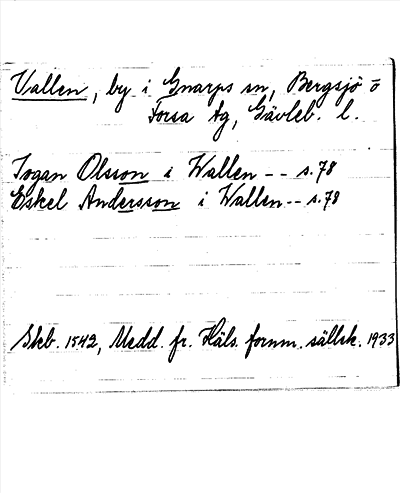 Vallen, by i Gnarps sn, Bergsjö o
Forsa tg, Gävleb. l.
Jogan Olsson i Wallen -- s. 78
Eskel Andersson i Wallen -- s. 78
Skb. 1542, Medd. fr. Häls. fornm. sällsk. 1933